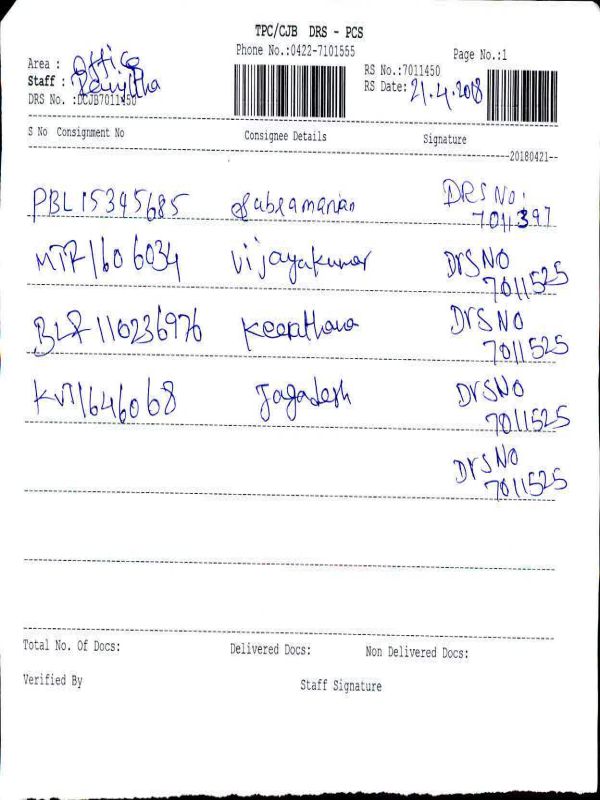 TPC/CJB DRS - PCS
Phone No.:0422-7101555
Page No.:1
Area : Office
RS No.:7011450
Staff : Ranjitha
RS Date: 21.4.2018
DRS No. :DCJB7011450
S No Consignment No Consignee Details Signature
20180421
PBL15395685 Subramanian DRS No:
7011397
MTR1606034 Vijayakumar DrSNO
7011525
BLR110236976 Keerthana DrSNO
7011525
KVT1646068 Jagadesh DrSNO
7011525
DrSNO
7011525
Total No. Of Docs: Delivered Docs: Non Delivered Docs:
Verified By Staff Signature